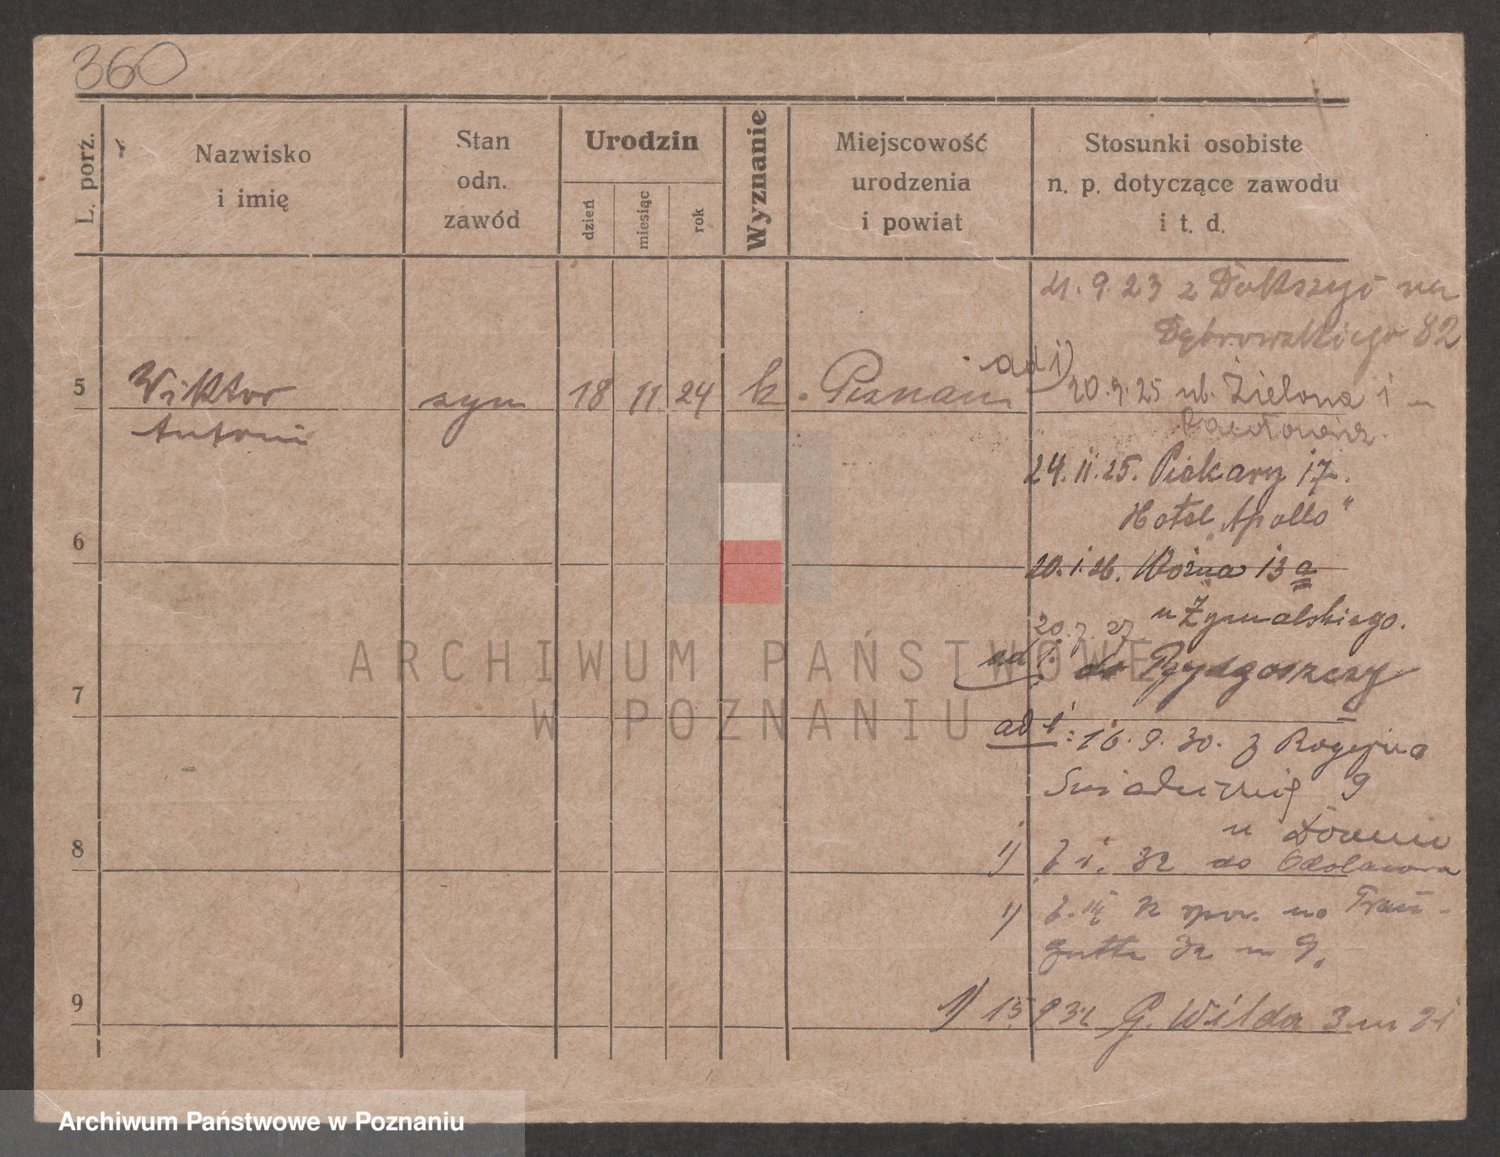 360
L. porż.
Nazwisko
i imię
Stan
odn.
zawód
Urodzin
dzień
miesiąc
rok
Wyznanie
Miejscowość
urodzenia
i powiat
Stosunki osobiste
n. p. dotyczące zawodu
i t. d.
21.9.23 z
Dąbrowskiego 82
5
Wiktor
Antoni
syn
18 11 24 k. Poznań
ad 1) 20.9.25 ul. Zielona 1
24.11.25. Piekary 17.
Hotel „Apollo"
6
20.1.26. Woźna 13a
u Żymalskiego.
20.7.27
ad 1. do Bydgoszczy
7
ad 1: 16.9.30. z
9
u
8
1) 1. 32 do Odolanowa
1) 32 na Trau-
gutta 32 m 9.
9
1) 15 9 32 G. Wilda 3 m 21
ARCHIWUM PAŃSTWOWE
W POZNANIU
Archiwum Państwowe w Poznaniu